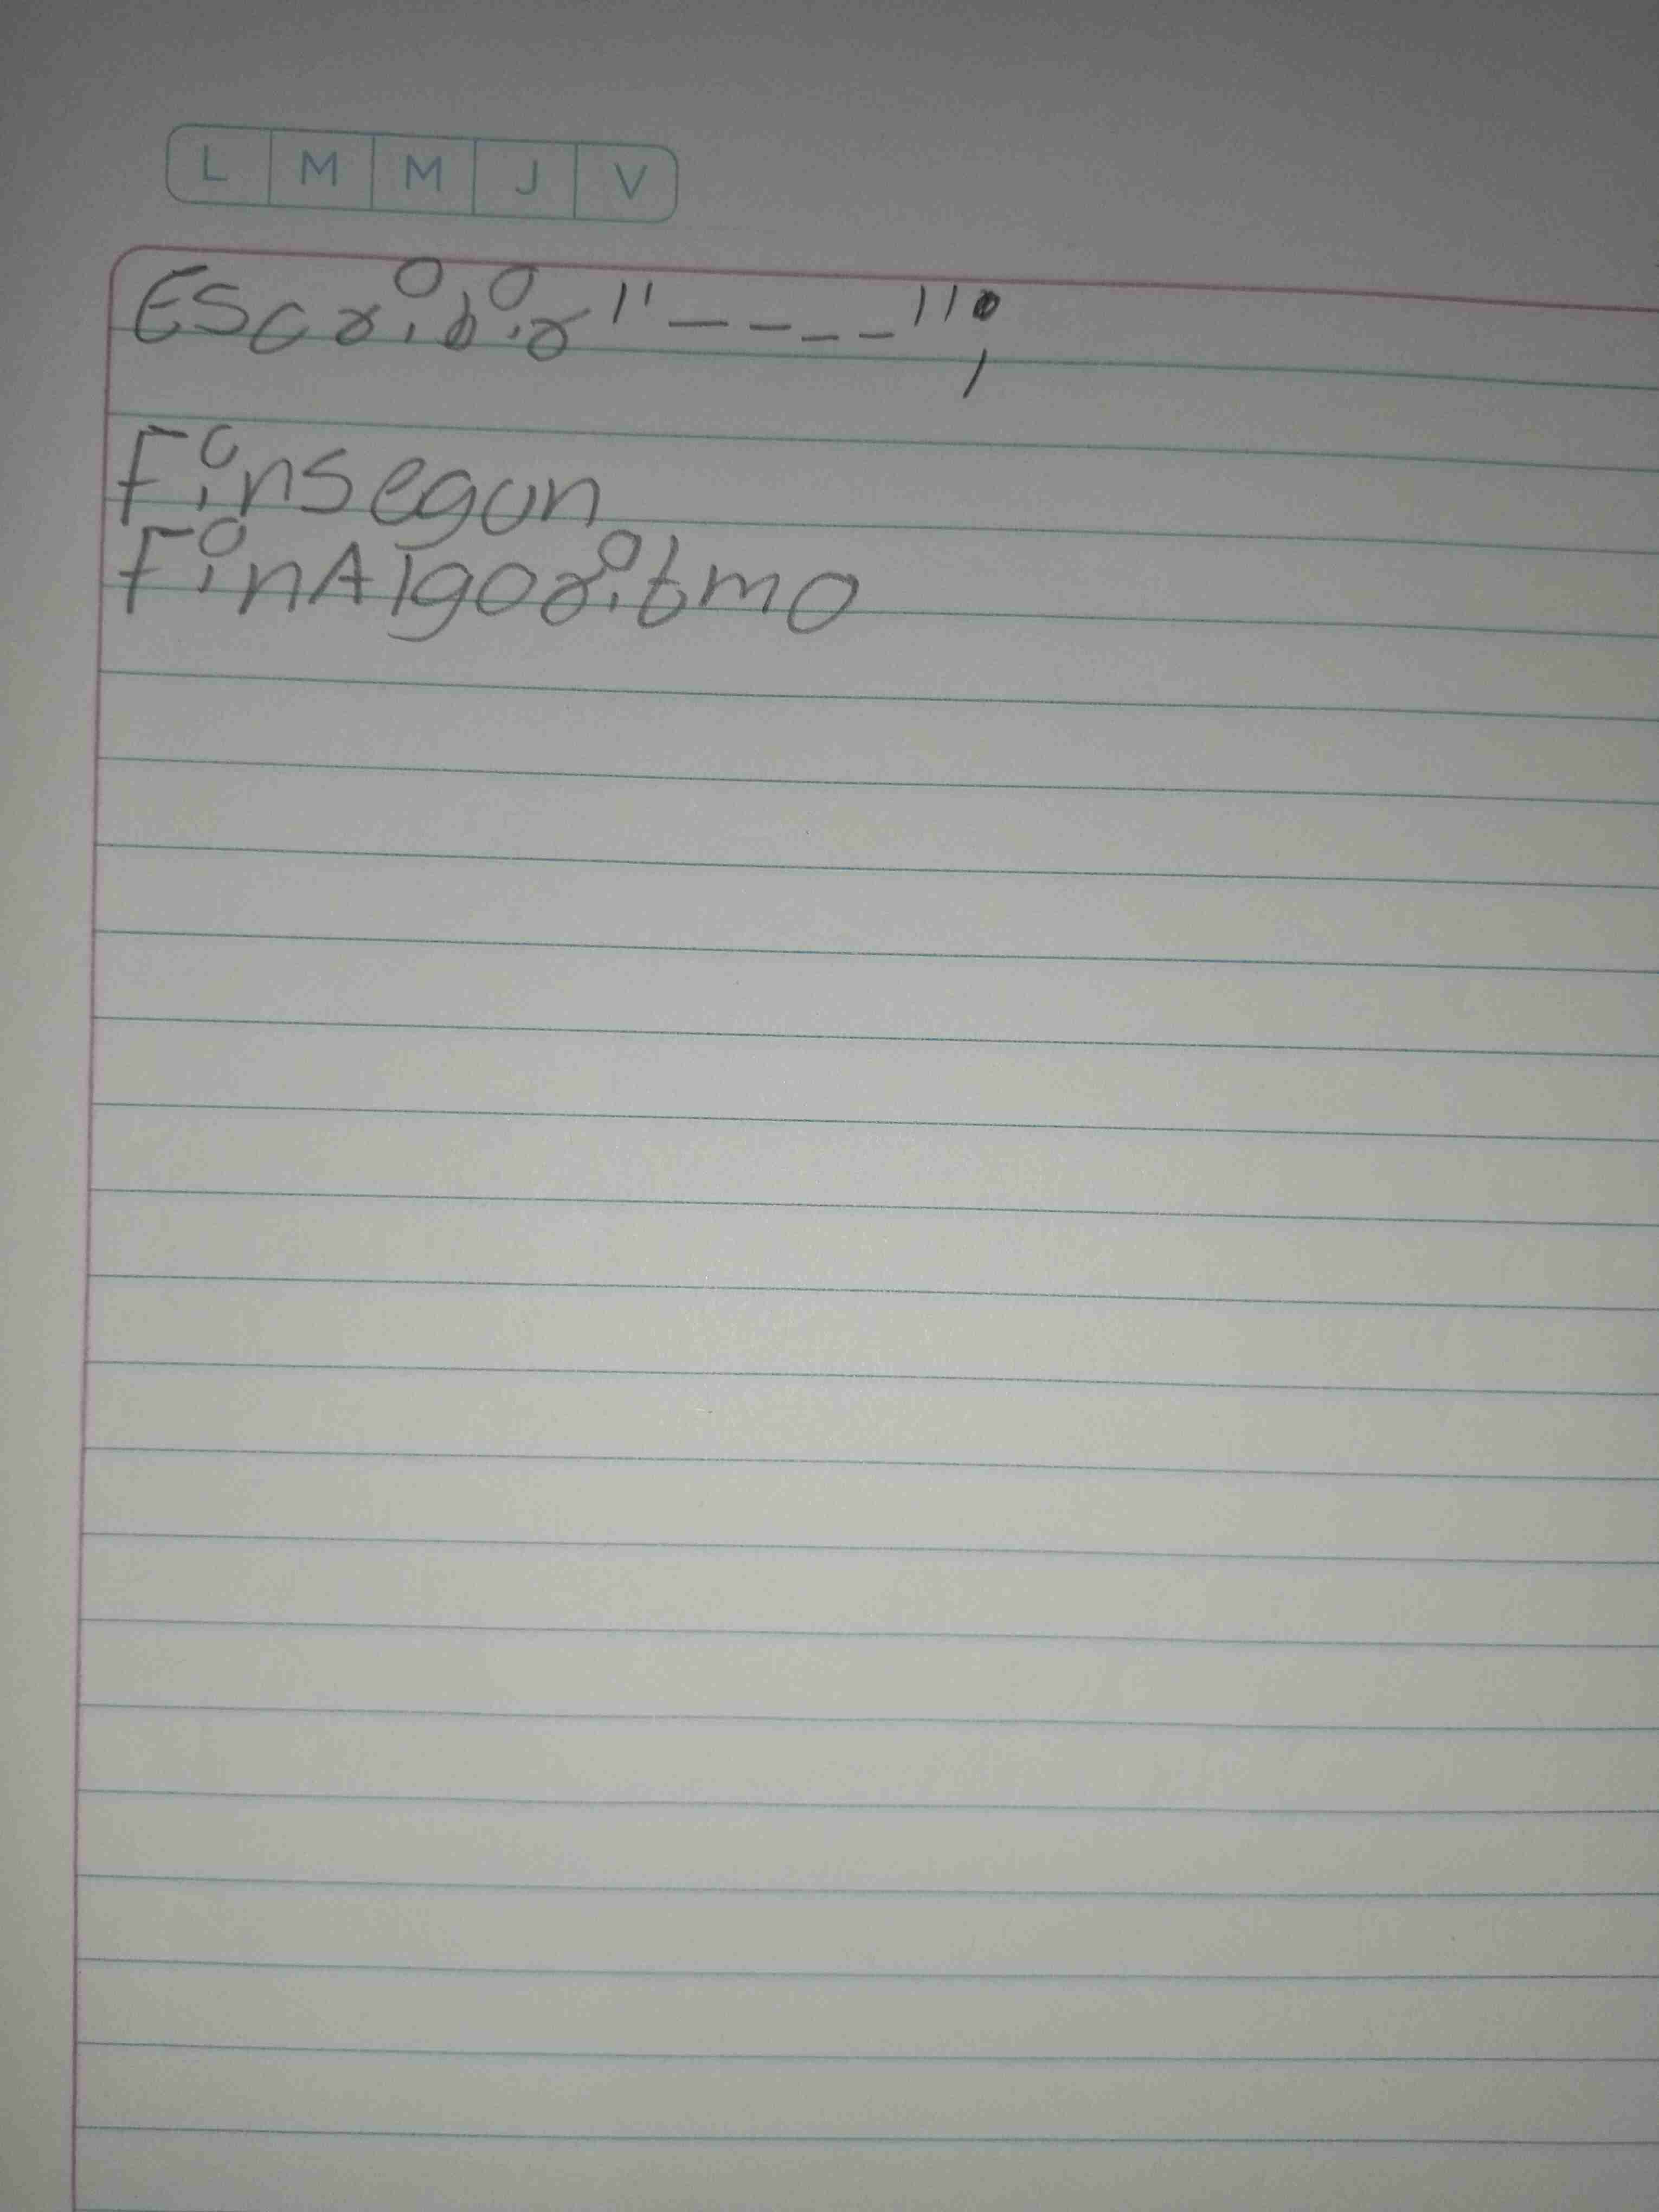 L M M J V
Escribir "----";
Finsegun
FinAlgoritmo